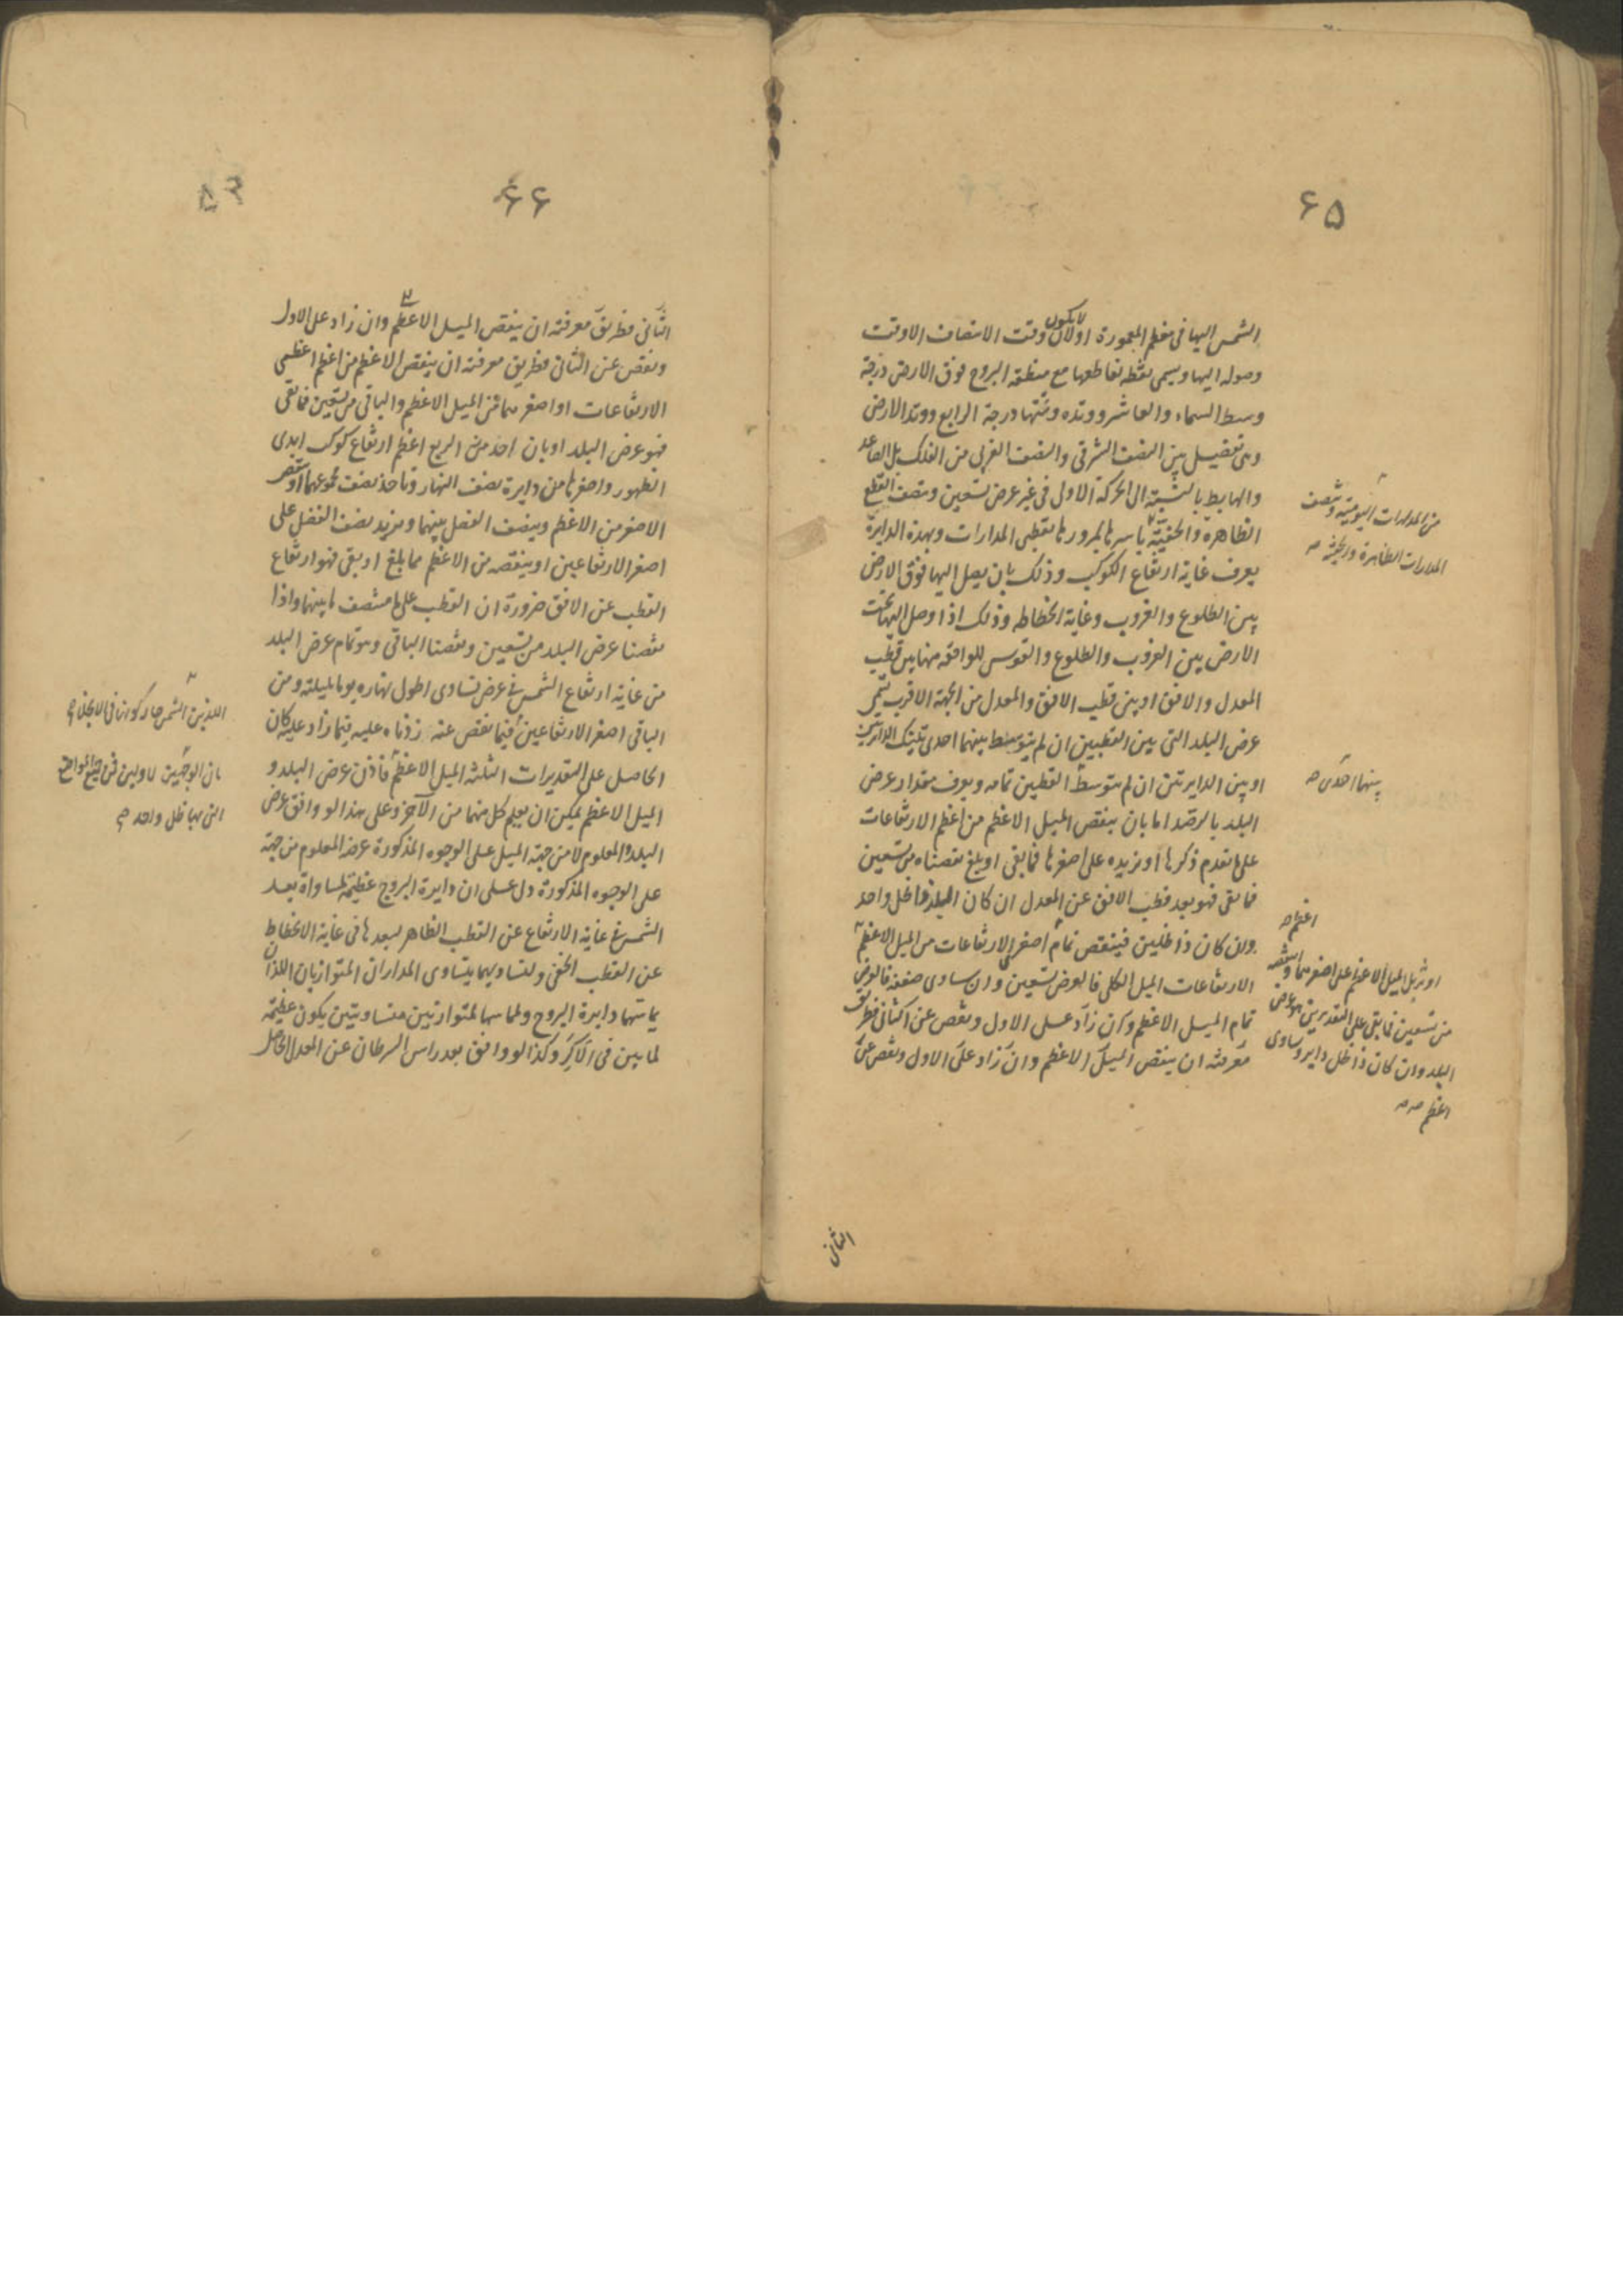 ۶۵
الشمس اليها في معظم المعمورة اولان لا يكون وقت الانتصاف الا وقت
وصوله اليها ويسمى نقطة تقاطعها مع منطقة البروج فوق الارض درجة
وسط السماء والعاشر ووتده وتحتها درجة الرابع ووتد الارض
وهي تفصيل بين النصف الشرقي والنصف الغربي من الفلك بل الصاعد
والهابط بالنسبة الى الحركة الاولى في غير عرض تسعين وتنصف القطع
الظاهرة والخفية باسرها لمرورها بقطبي المدارات وبهذه الدايرة
يعرف غاية ارتفاع الكوكب وذلك بان يصل اليها فوق الارض
بين الطلوع والغروب وغاية انحطاطه وذلك اذا وصل اليها تحت
الارض بين الغروب والطلوع والقوس الواقعة منها بين قطب
المعدل والافق او بين قطب الافق والمعدل من الجهة الاقرب تسمى
عرض البلد التي بين القطبين ان لم يتوسط بينهما احدى تلك الدايرتين
او بين الدايرتين ان لم يتوسط القطبين تمامه ويعرف مقدار عرض
البلد بالرصد اما بان ينقص الميل الاعظم من اعظم الارتفاعات
على ما تقدم ذكرها او نزيده على اصغرها فما بقي او بلغ نقصناه من تسعين
فما بقي فهو بعد قطب الافق عن المعدل ان كان البلد ذا ظل واحد
وان كان ذا ظلين فينقص تمام اصغر الارتفاعات من الميل الاعظم
الارتفاعات الميل الكلي فالعرض تسعين وان ساوى ضعفه فالعرض
تمام الميل الاعظم وان زاد على الاول ونقص عن الثاني فطريق
معرفته ان ينقص الميل الاعظم وان زاد على الاول ونقص عن
من المدارات اليومية وتنصف
المدارات الظاهرة والخفية صح
بينهما احدى صح
اعظم صح
او نزيد الميل الاعظم على اصغرهما وننقصه
من تسعين فما بقي على التقديرين فهو عرض
البلد وان كان ذا ظل داير وساوى
اعظم صح صح
الثاني
۶۶
۵۳
الثاني فطريق معرفته ان ينقص الميل الاعظم وان زاد على الاول
ونقص عن الثاني فطريق معرفته ان ينقص الاعظم من اعظم اعظمي
الارتفاعات او اصغرهما من الميل الاعظم والباقي من تسعين فما بقي
فهو عرض البلد او بان اخذ من الربع اعظم ارتفاع كوكب ابدي
الظهور واصغرها من دايرة نصف النهار وناخذ نصف مجموعهما او ننقص
الاصغر من الاعظم وينصف الفضل بينهما ونزيد نصف الفضل على
اصغر الارتفاعين او ينقصه من الاعظم مما بلغ او بقي فهو ارتفاع
القطب عن الافق ضرورة ان القطب على منتصف ما بينهما واذا
نقصنا عرض البلد من تسعين ونقصنا الباقي وهو تمام عرض البلد
من غاية ارتفاع الشمس في عرض تساوى اطول نهاره يوما بليلته ومن
الباقي اصغر الارتفاعين فيما نقص عنه زدناه عليه فيما زاد عليه كان
الحاصل على التقديرات الثلثة الميل الاعظم فاذن عرض البلد و
الميل الاعظم يمكن ان يعلم كل منهما من الآخر وعلى هذا لو وافق عرض
البلد والمعلوم لا من جهة الميل على الوجوه المذكورة عرضه المعلوم من جهته
على الوجوه المذكورة دل على ان دايرة البروج عظيمة لمساواة بعد
الشمس في غاية الارتفاع عن القطب الظاهر لبعدها في غاية الانحطاط
عن القطب الخفي ولتساويهما يتساوى المداران المتوازيان اللذان
يماسهما دايرة البروج والمماسة لمتوازيتين متساويتين يكون عظيمة
لما بين في الاكر وكذا لو وافق بعد راس السرطان عن المعدل الحاصل
اللذين الشمس
بان الوجهين الاولين في جميع المواضع
التي لها ظل واحد صح